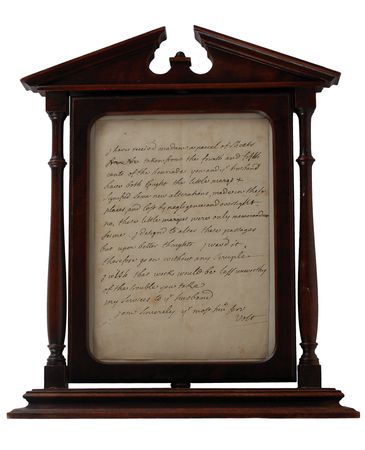 j have receivd madam a parcel of sheets
from     taken from the fourth and fifth
canto of the henriade you and yr husband
have both taught the little marqs &
signified some new alterations made in these
places and left by negligence and oversight
no, these little marques were only memorandum
for me. j designd to alter these passages
but upon better thoughts j wav'd it
therefore go on without any scruple
j wish the work would be less unworthy
of the trouble you take
my services to yr husband
j am sincerely yr most hum. ser.
Volt